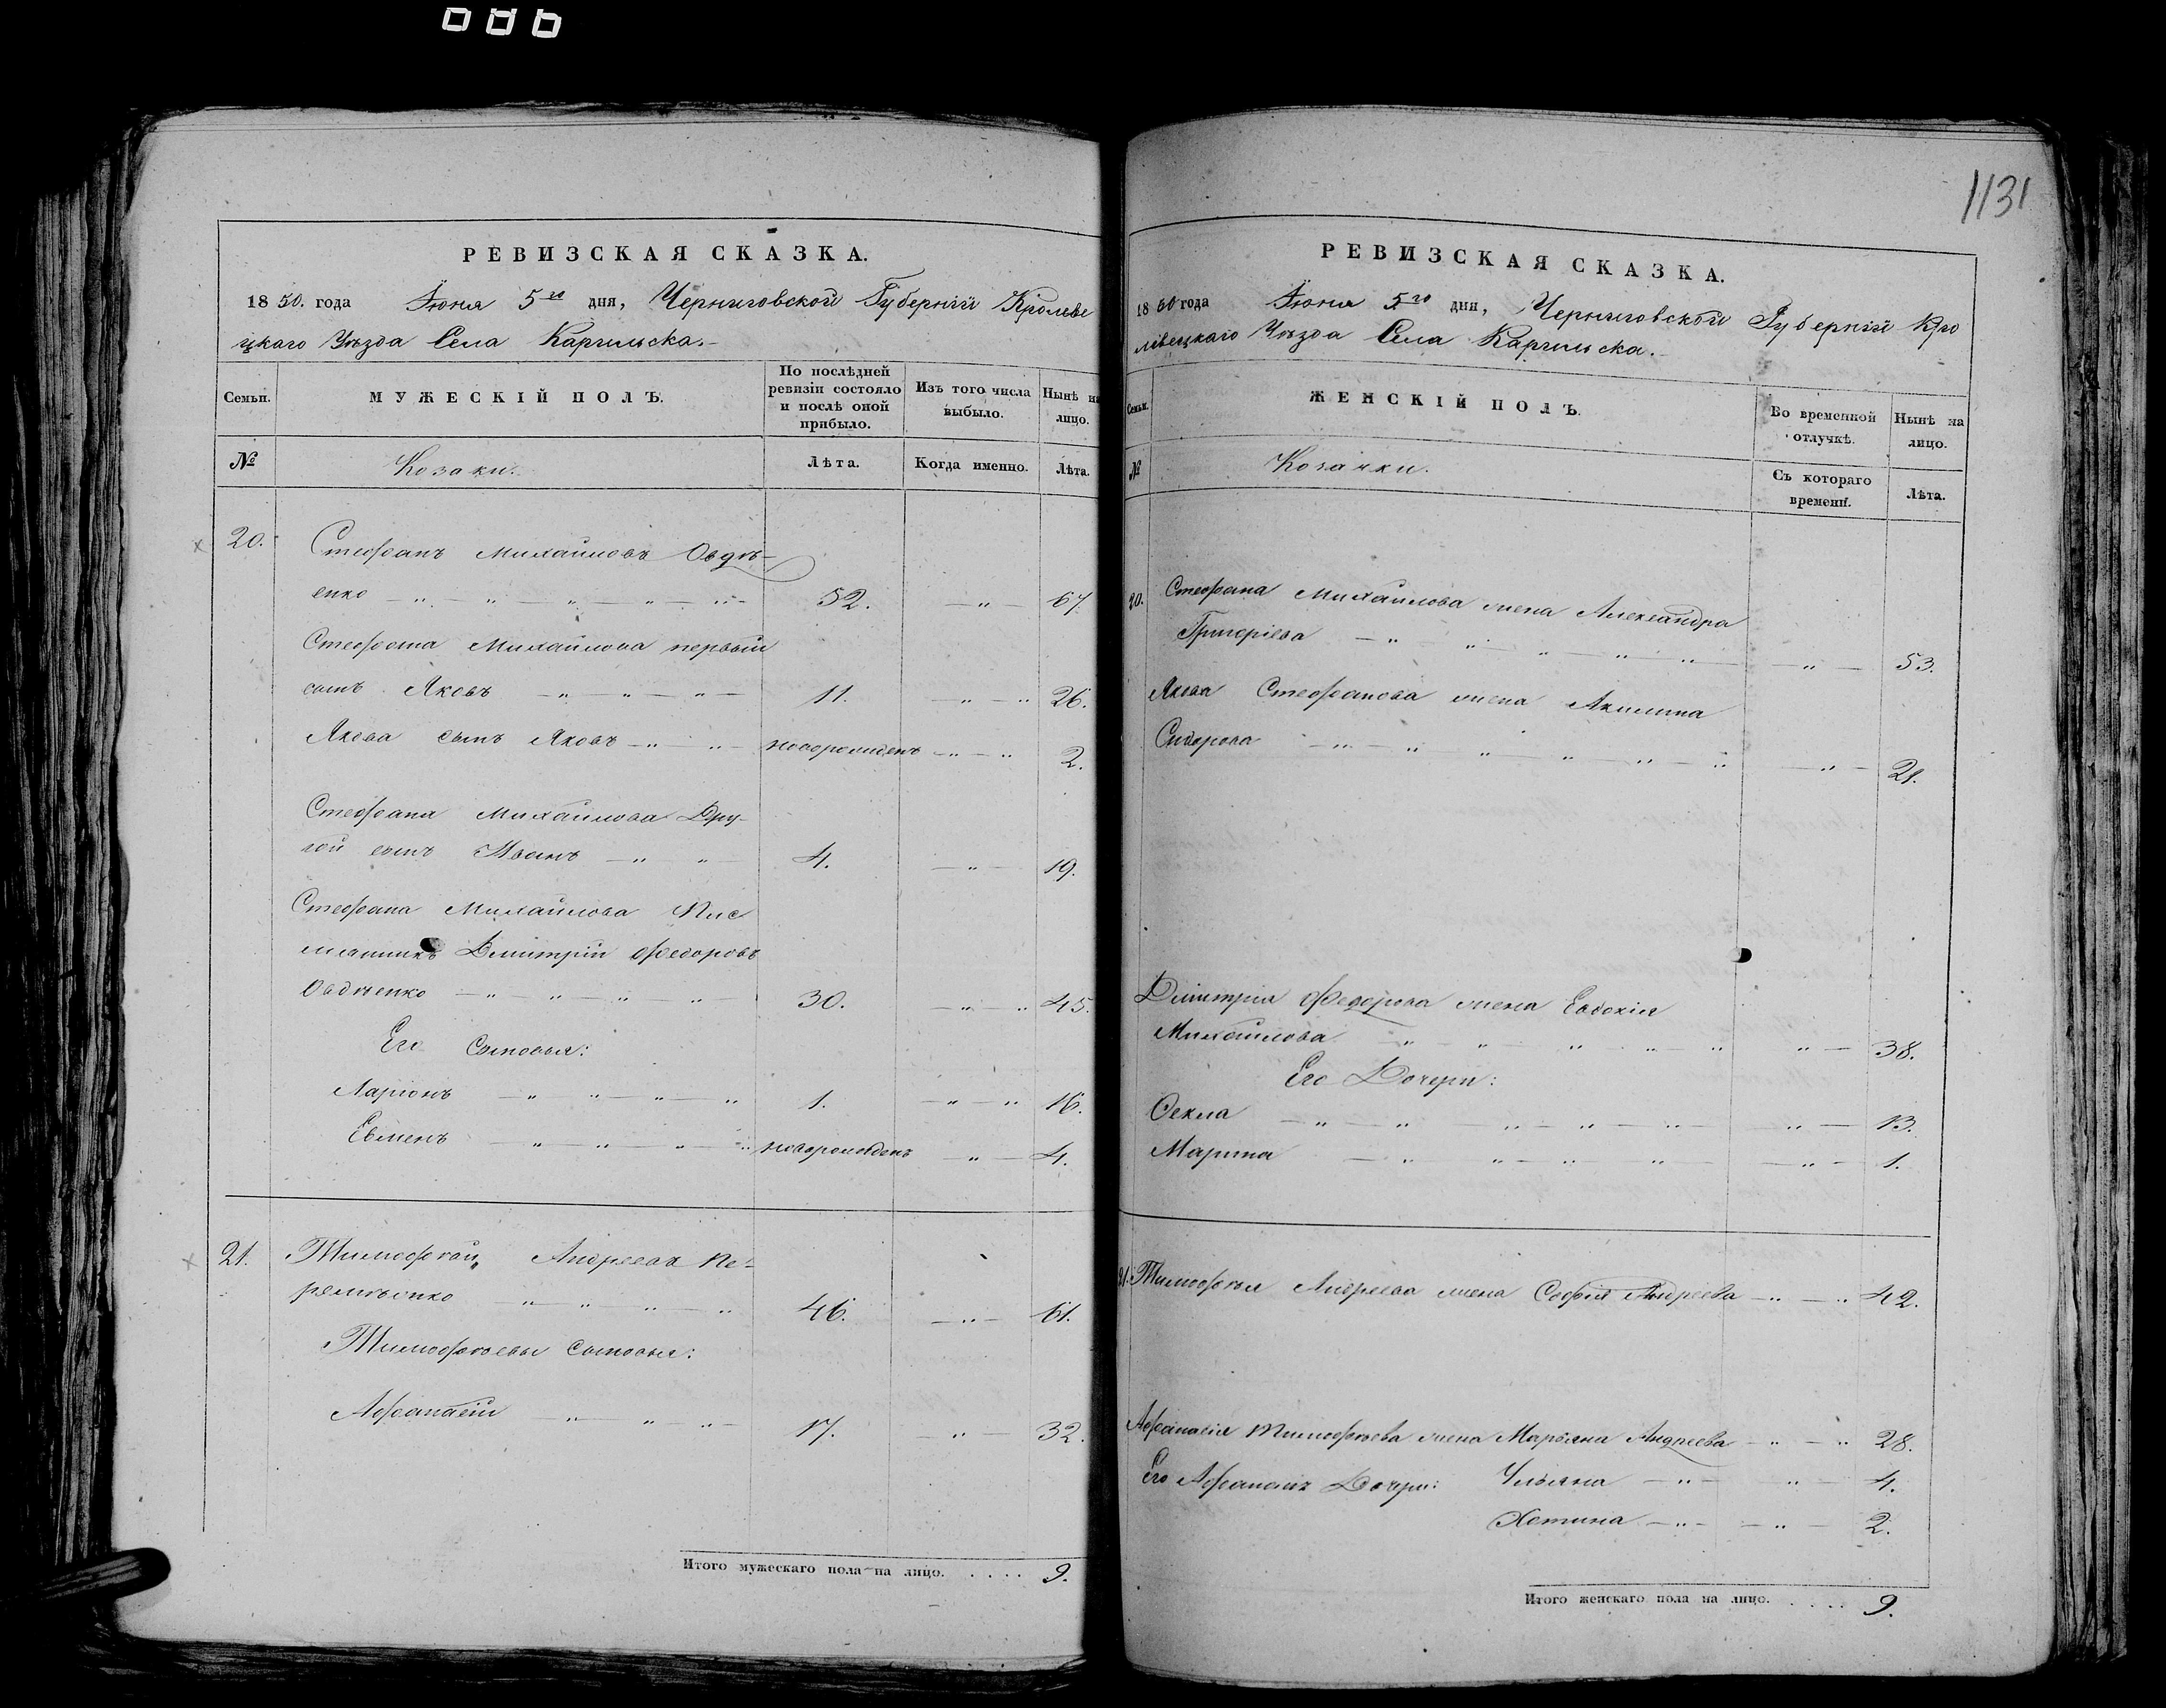 1131
РЕВИЗСКАЯ СКАЗКА.
1850. года Іюня 5го дня, Черниговской Губерніи Кролеве
цкаго Уѣзда Села Каргильска.
Семьи.
МУЖЕСКІЙ ПОЛЪ.
По послѣдней ревизіи состояло и послѣ оной прибыло.
Изъ того числа выбыло.
Нынѣ на лицо.
№
Козаки.
Лѣта.
Когда именно.
Лѣта.
20. Стефанъ Михайловъ Овдѣ-
енко 52. 67.
Стефана Михайлова первый
сынъ Яковъ 11. 26.
Якова сынъ Яковъ новорожденъ 2.
Стефана Михайлова Дру-
гой сынъ Иванъ 4. 19.
Стефана Михайлова Пле
мянникъ Дмитрій Федоровъ
Овдѣенко 30. 45.
Его Сыновья:
Ларіонъ 1. 16.
Евменъ новорожденъ 4.
21. Тимофей Андреевъ
46. 61.
Тимофѣевы Сыновья:
Афанасій 17. 32.
Итого мужескаго пола на лицо. . . . . 9.
РЕВИЗСКАЯ СКАЗКА.
1850 года Іюня 5го дня, Черниговской Губерніи Кро
левецкаго Уѣзда Села Каргильска.
Семьи.
ЖЕНСКІЙ ПОЛЪ.
Во временной отлучкѣ.
Нынѣ на лицо.
№
Козачки.
Съ котораго времени.
Лѣта.
20. Стефана Михайлова жена Александра
Григоріева 53.
Якова Стефанова жена Акилина
Сидорова 21.
Димитрія Федорова жена Евдокія
Михайлова 38.
Его Дочери:
Фекла 13.
Марина 1.
21. Тимофѣя Андреева жена Софія Андреева 42.
Афанасія Тимофѣева жена Марьяна Андреева 28.
Его Дочери: Ульяна 4.
Хотина 2.
Итого женскаго пола на лицо. . . . . 9.